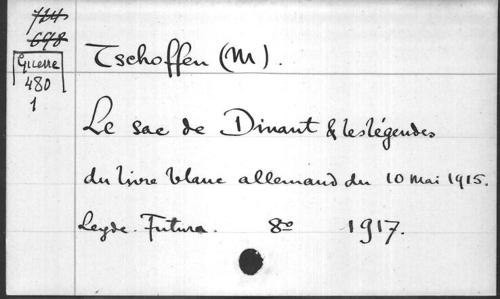 714
698
Guerre
480
1
Tschoffen (M).
Le sac de Dinant & les légendes
du livre blanc allemand du 10 mai 1915.
Leyde. Futura. 8º 1917.